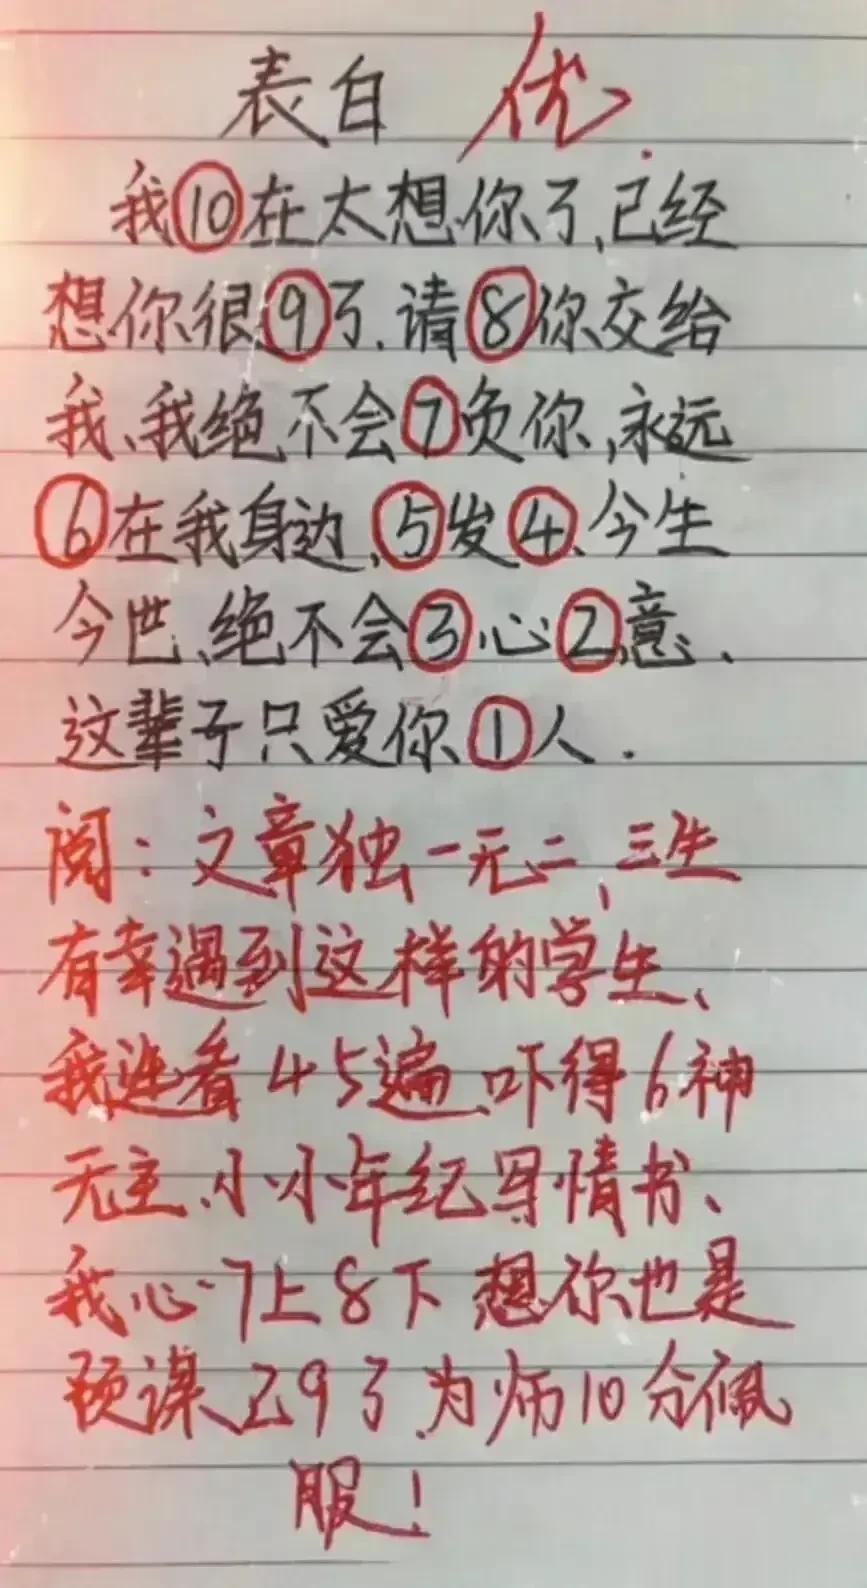 表白 优
我⑩在太想你了、已经
想你很⑨了.请⑧你交给
我、我绝不会⑦负你、永远
⑥在我身边、⑤发④、今生
今世、绝不会③心②意、
这辈子只爱你①人.
阅:文章独一无二、三生
有幸遇到这样的学生、
我连看45遍、吓得6神
无主、小小年纪写情书、
我心7上8下 想你也是
预谋已9了、为师10分佩
服!